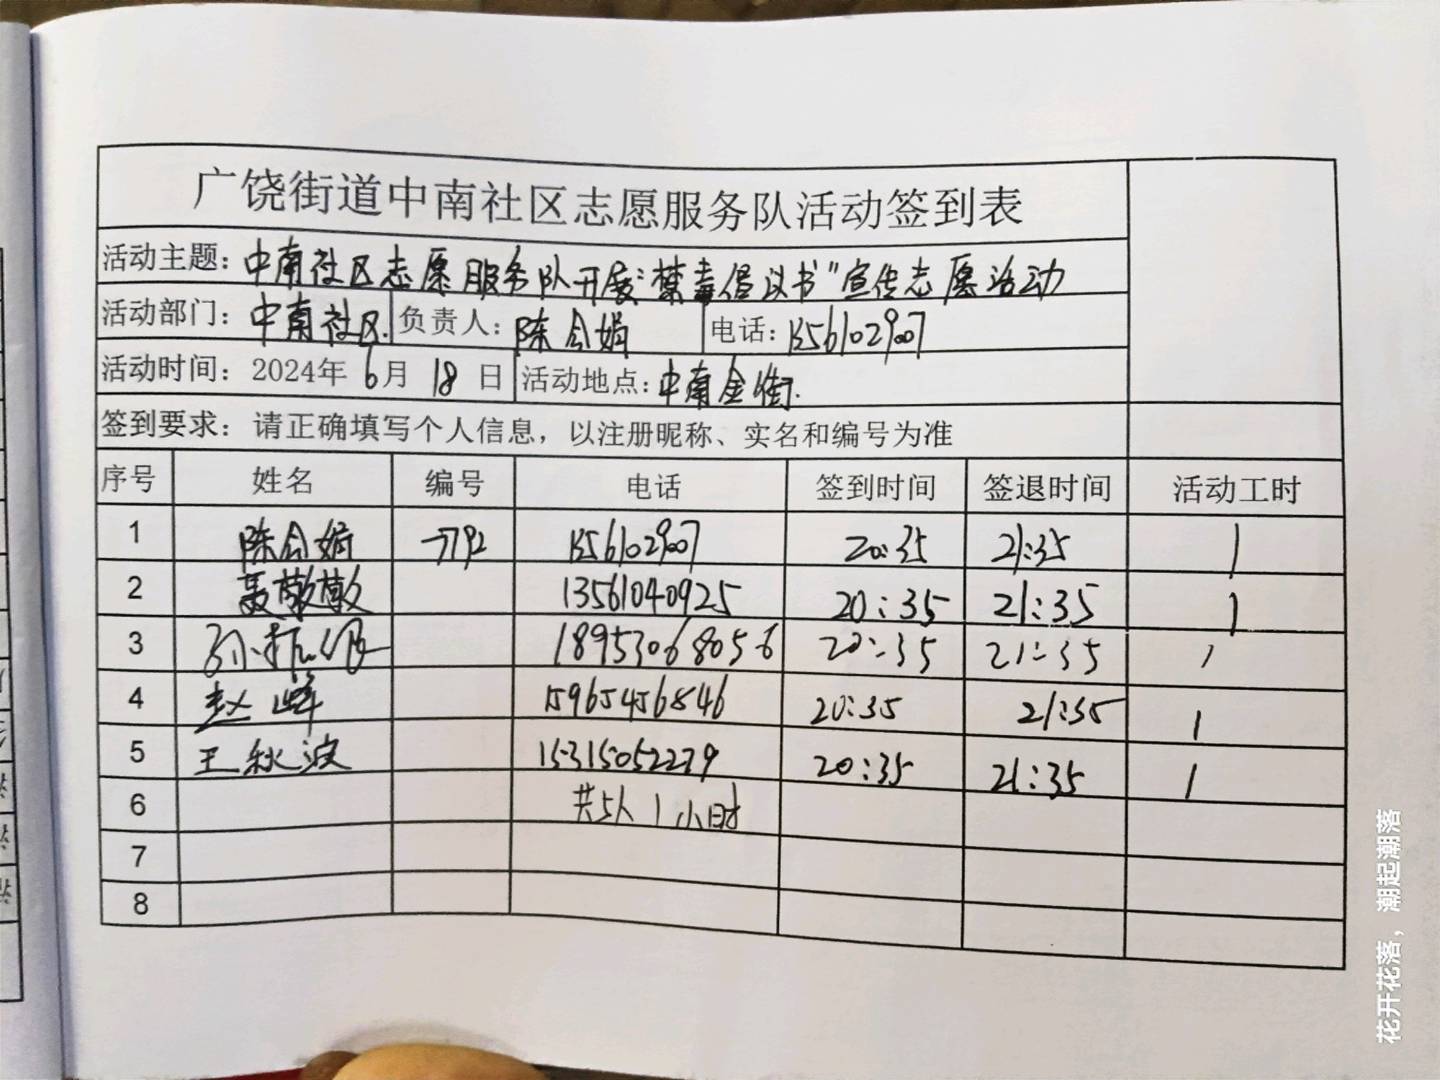 广饶街道中南社区志愿服务队活动签到表
活动主题：中南社区志愿服务队开展“禁毒倡议书”宣传志愿活动
活动部门：中南社区 负责人：陈会娟 电话：13561029007
活动时间：2024年 6月 18 日 活动地点：中南金街.
签到要求：请正确填写个人信息，以注册昵称、实名和编号为准
序号 姓名 编号 电话 签到时间 签退时间 活动工时
1 陈会娟 13561029007 20:35 21:35 1
2 聂敬敬 13561040925 20:35 21:35 1
3 孙 18953068056 20:35 21:35 1
4 赵峰 15965456846 20:35 21:35 1
5 王秋波 15315052279 20:35 21:35 1
6 共5人 1小时
7
8
花开花落，潮起潮落